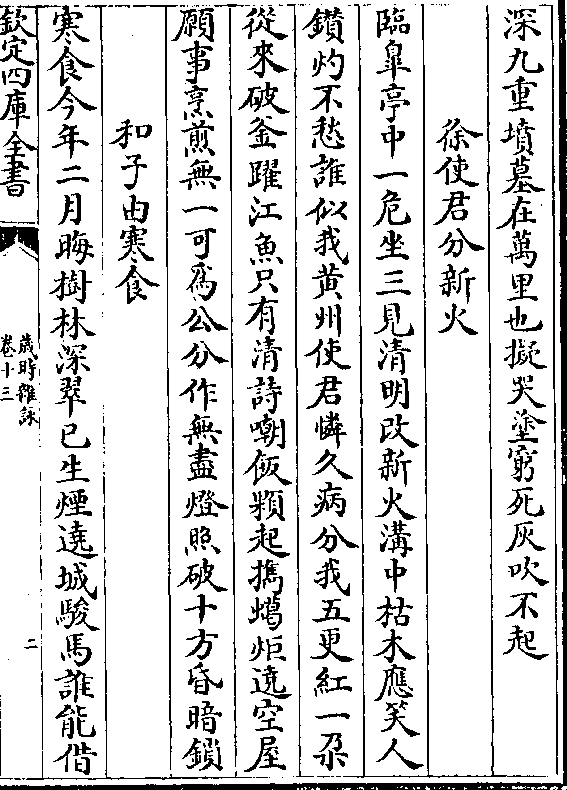 深九重墳墓在萬里也擬哭塗窮死灰吹不起
徐使君分新火
臨臯亭中一危坐三見清明改新火溝中枯木應笑人
鑚灼不愁誰似我黄州使君憐久病分我五更紅一朶
從來破釜躍江魚只有清詩嘲飯顆起擕蠟炬遶空屋
願事烹煎無一可爲公分作無盡燈照破十方昏暗鎖
和子由寒食
寒食今年二月晦樹林深翠已生煙遶城駿馬誰能借
欽定四庫全書
歲時雜詠
卷十三
二